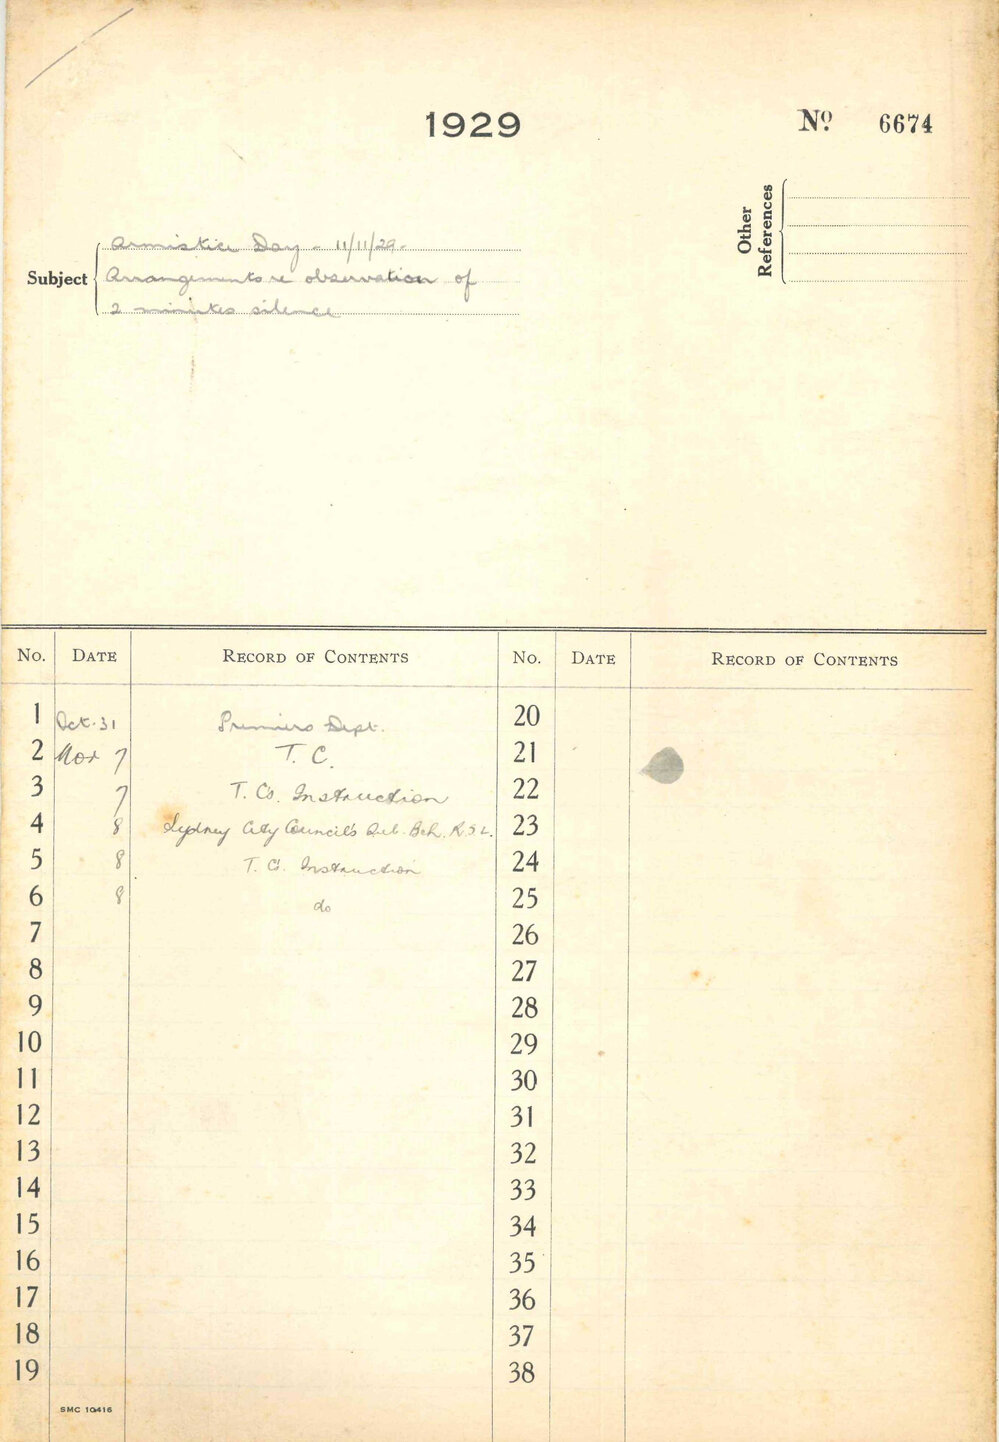 1929
No. 6674
Other References
Subject
Armistice Day - 11/11/29.
Arrangements re observation of
2 minutes silence
No. DATE RECORD OF CONTENTS No. DATE RECORD OF CONTENTS
1 Oct. 31 Premiers Dept. 20
2 Nov 7 T. C. 21
3 7 T. Cs. Instruction 22
4 8 Sydney City Council's Sub. Bch. R.S.L. 23
5 8 T. Cs. Instruction 24
6 8 do 25
7 26
8 27
9 28
10 29
11 30
12 31
13 32
14 33
15 34
16 35
17 36
18 37
19 38
SMC 10416